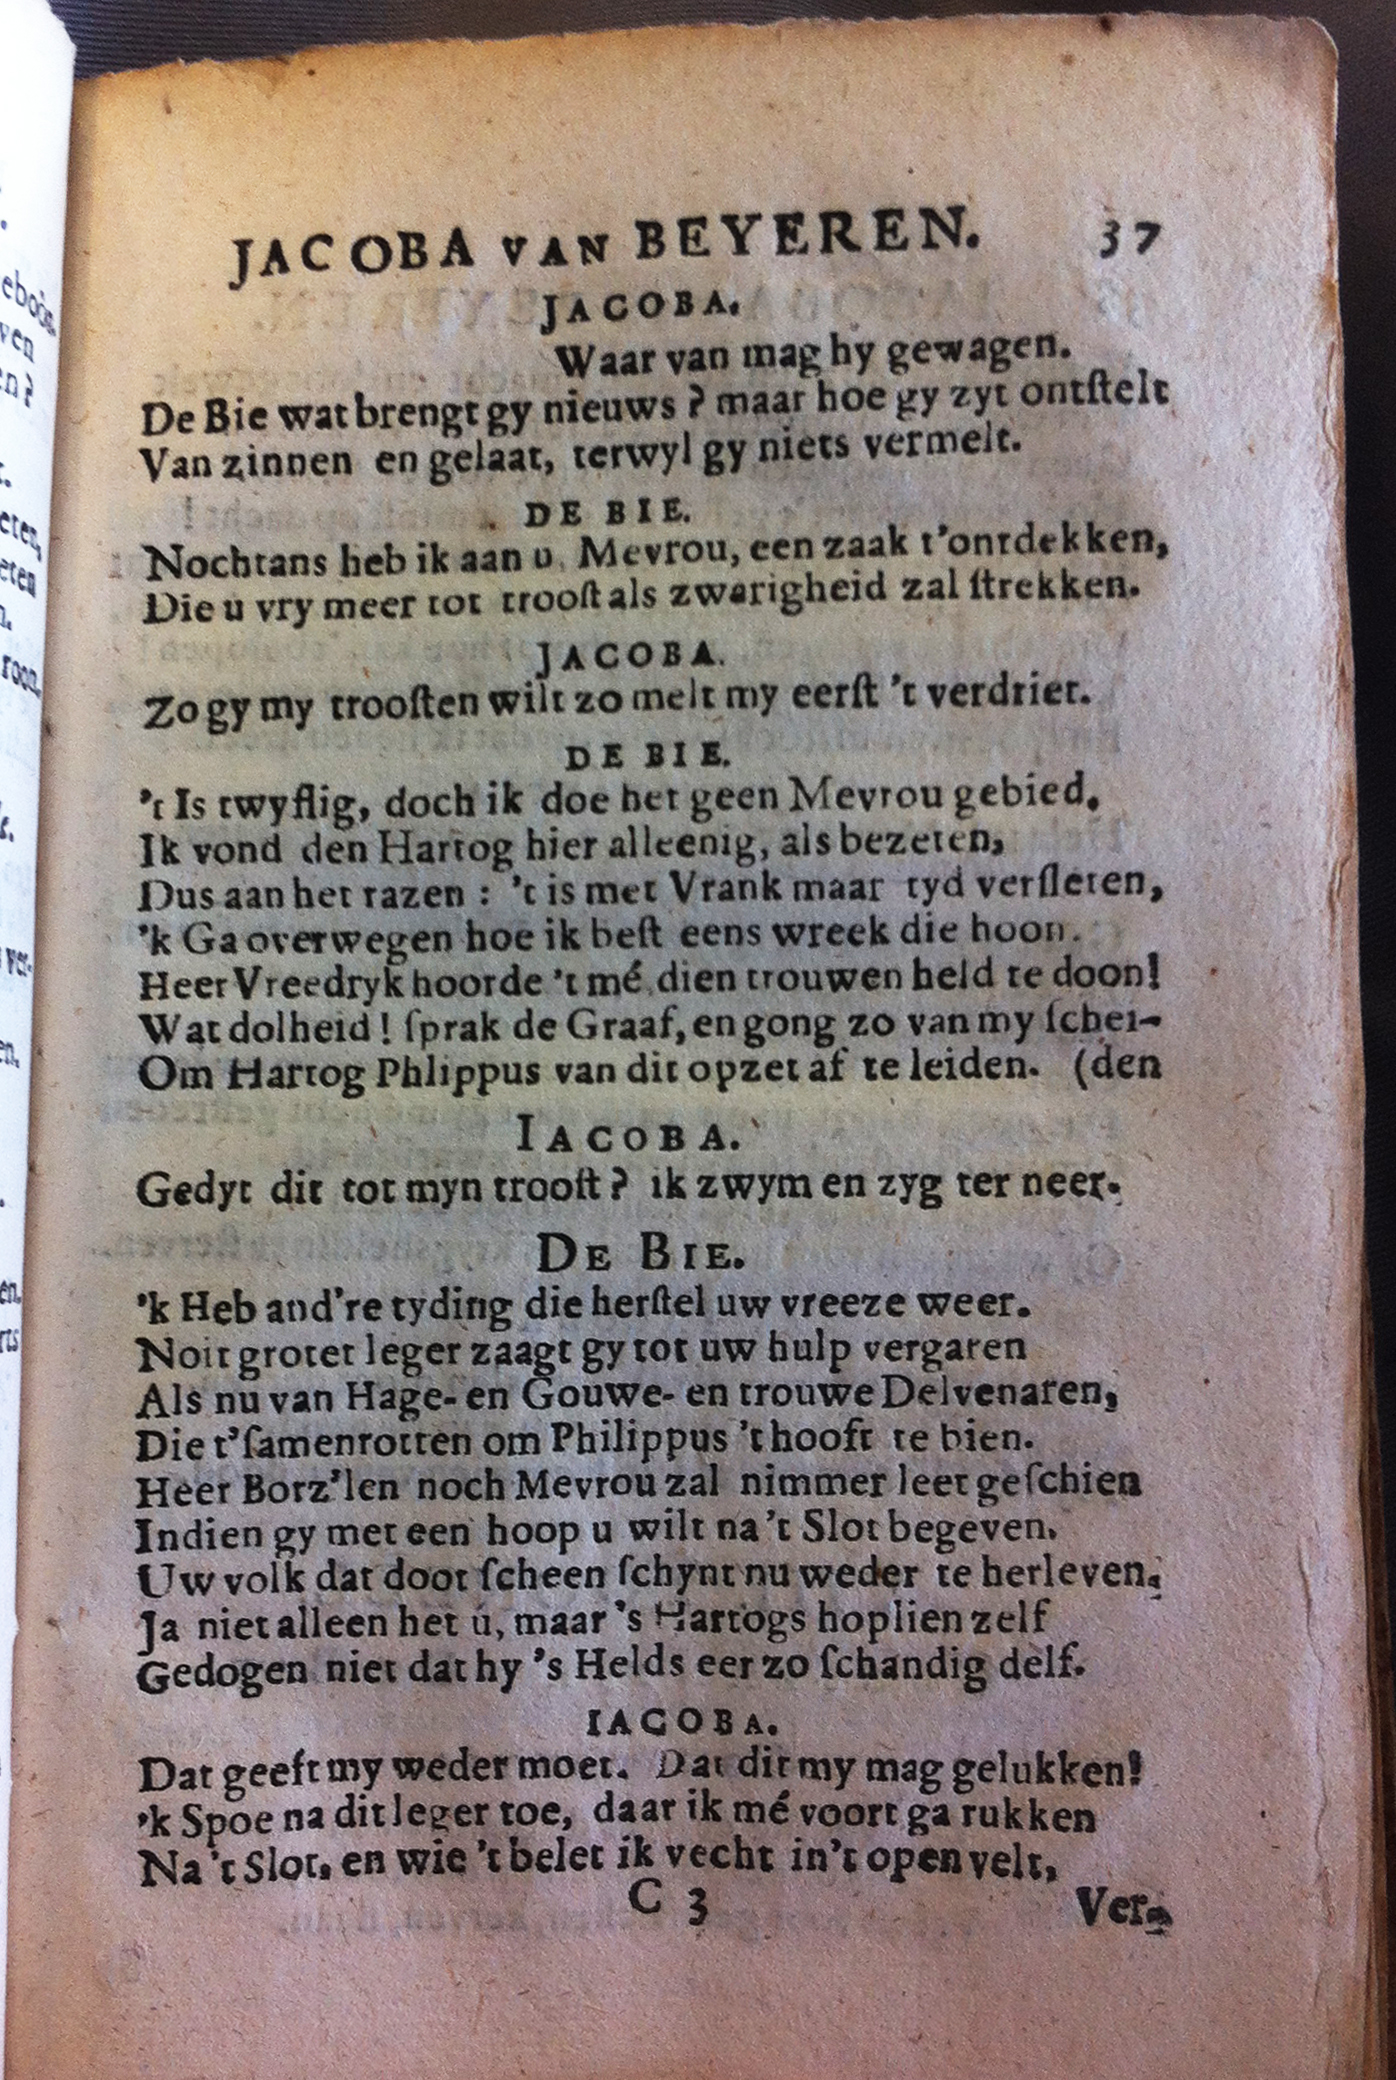 JACOBA VAN BEYEREN. 37
JACOBA.
Waar van mag hy gewagen.
De Bie wat brengt gy nieuws? maar hoe gy zyt ontſtelt
Van zinnen en gelaat, terwyl gy niets vermelt.
DE BIE.
Nochtans heb ik aan u, Mevrou, een zaak t'ontdekken,
Die u vry meer tot trooſt als zwarigheid zal ſtrekken.
JACOBA.
Zo gy my trooſten wilt zo melt my eerſt 't verdriet.
DE BIE.
't Is twyflig, doch ik doe het geen Mevrou gebied.
Ik vond den Hartog hier alleenig, als bezeten,
Dus aan het razen: 't is met Vrank maar tyd verſleten,
'k Ga overwegen hoe ik beſt eens wreek die hoon.
Heer Vreedryk hoorde 't mé dien trouwen held te doon!
Wat dolheid! ſprak de Graaf, en gong zo van my ſchei-
Om Hartog Phlippus van dit opzet af te leiden. (den
IACOBA.
Gedyt dit tot myn trooſt? ik zwym en zyg ter neer.
DE BIE.
'k Heb and're tyding die herſtel uw vreeze weer.
Noit groter leger zaagt gy tot uw hulp vergaren
Als nu van Hage- en Gouwe- en trouwe Delvenaren,
Die t'ſamenrotten om Philippus 't hooft te bien.
Heer Borz'len noch Mevrou zal nimmer leet geſchien
Indien gy met een hoop u wilt na 't Slot begeven.
Uw volk dat doot ſcheen ſchynt nu weder te herleven,
Ja niet alleen het ú, maar 's Hartogs hoplien zelf
Gedogen niet dat hy 's Helds eer zo ſchandig delf.
IACOBA.
Dat geeft my weder moet. Dat dit my mag gelukken!
'k Spoe na dit leger toe, daar ik mé voort ga rukken
Na 't Slot. en wie 't belet ik vecht in 't open velt,
C 3 Ver-